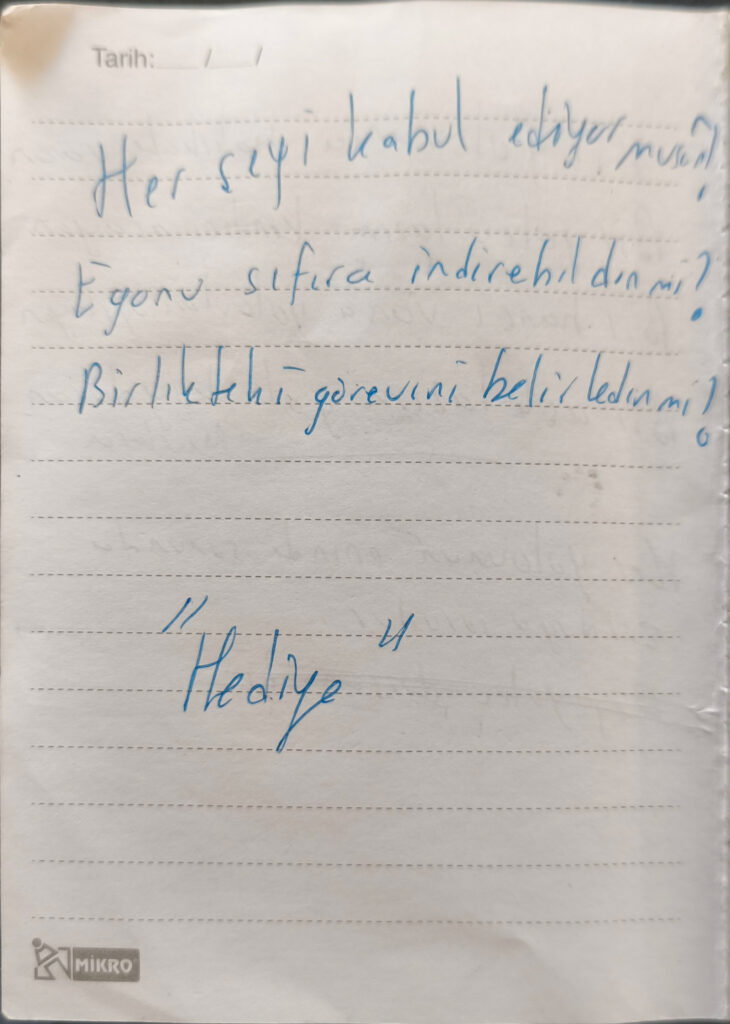 Tarih: / /
Her şeyi kabul ediyor musun?
Egonu sıfıra indirebildin mi?
Birlikteki görevini belirledin mi?
"Hediye"
MİKRO